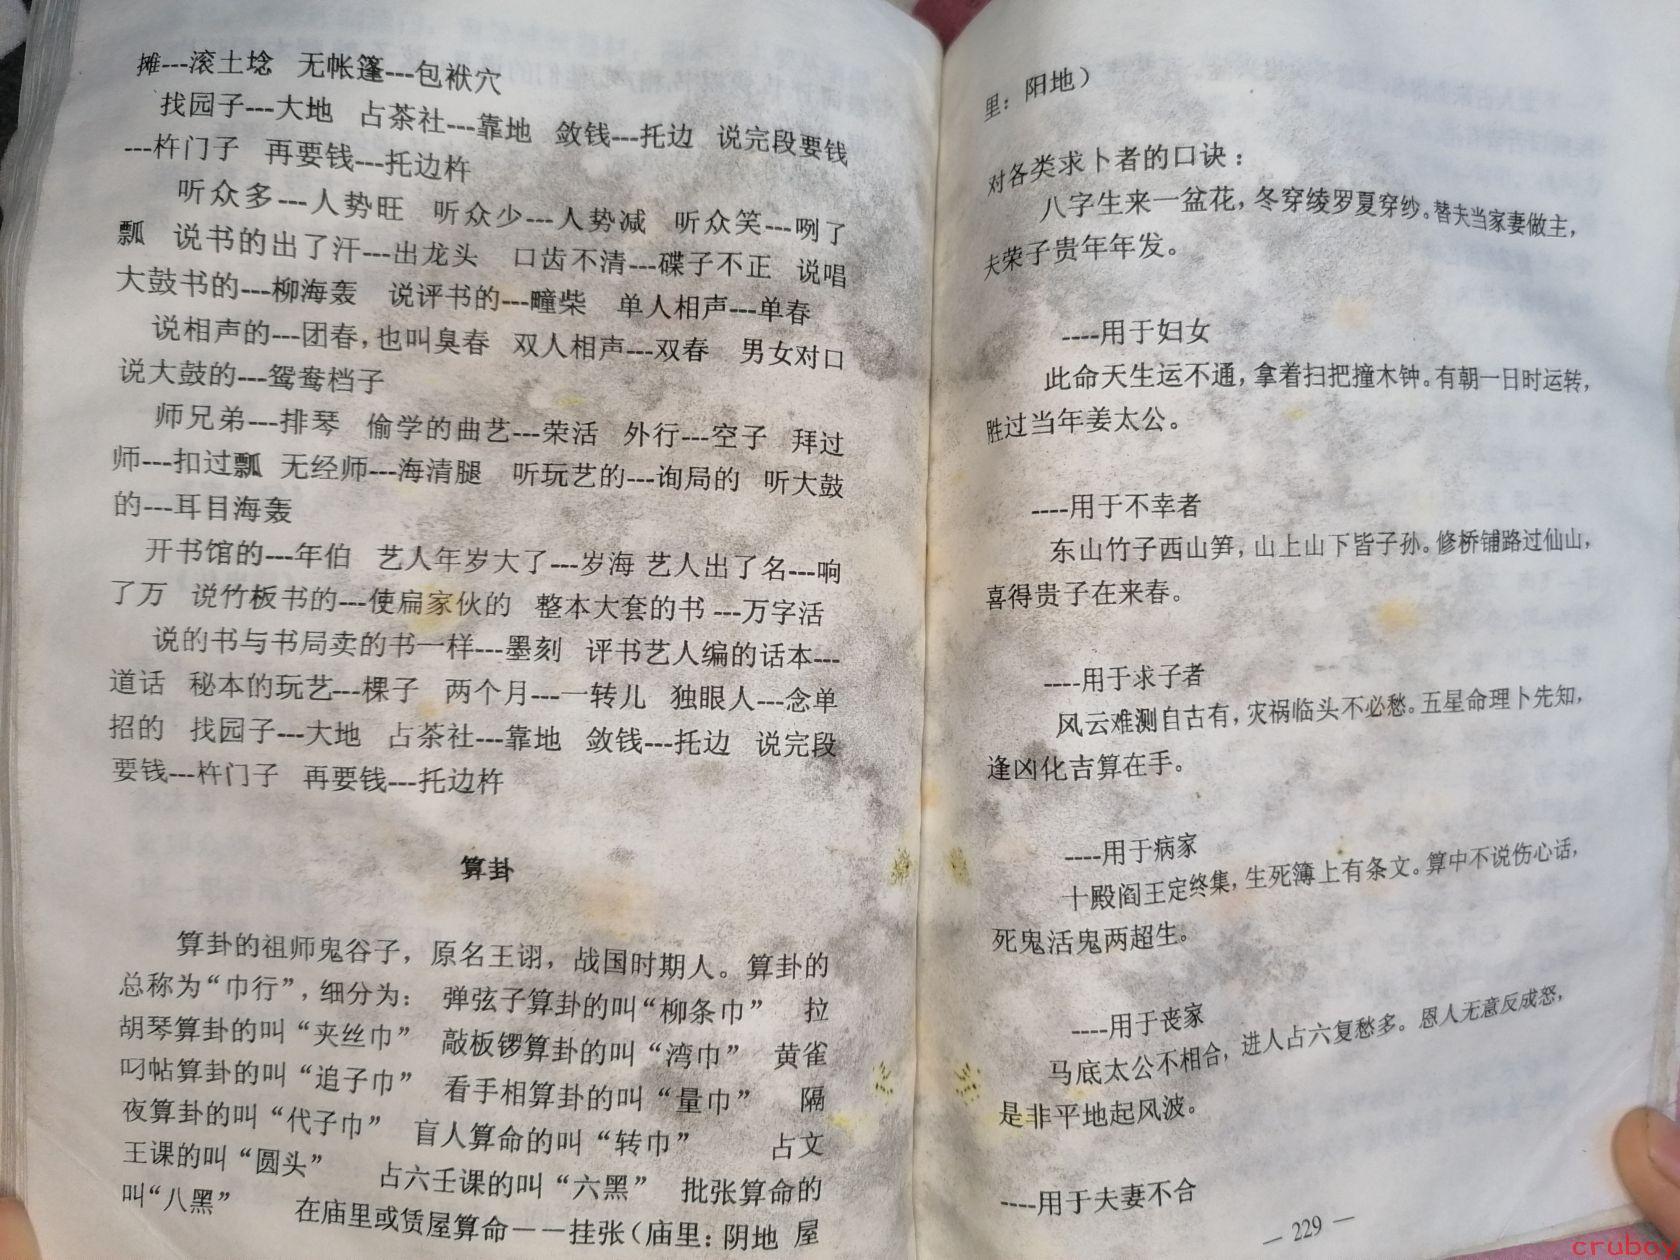 摊---滚土埝  无帐篷---包袱穴
找园子---大地  占茶社---靠地  敛钱---托边  说完段要钱
---杵门子  再要钱---托边杵
听众多---人势旺  听众少---人势减  听众笑---咧了
瓢  说书的出了汗---出龙头  口齿不清---碟子不正  说唱
大鼓书的---柳海轰  说评书的---疃柴  单人相声---单春
说相声的---团春，也叫臭春  双人相声---双春  男女对口
说大鼓的---鸳鸯档子
师兄弟---排琴  偷学的曲艺---荣活  外行---空子  拜过
师---扣过瓢  无经师---海清腿  听玩艺的---询局的  听大鼓
的---耳目海轰
开书馆的---年伯  艺人年岁大了---岁海 艺人出了名---响
了万  说竹板书的---使扁家伙的  整本大套的书 ---万字活
说的书与书局卖的书一样---墨刻  评书艺人编的话本---
道话  秘本的玩艺---棵子  两个月---一转儿  独眼人---念单
招的  找园子---大地  占茶社---靠地  敛钱---托边  说完段
要钱---杵门子  再要钱---托边杵
算卦
算卦的祖师鬼谷子，原名王诩，战国时期人。算卦的
总称为“巾行”，细分为：  弹弦子算卦的叫“柳条巾”  拉
胡琴算卦的叫“夹丝巾”  敲板锣算卦的叫“湾巾”  黄雀
叼帖算卦的叫“追子巾”  看手相算卦的叫“量巾”  隔
夜算卦的叫“代子巾”  盲人算命的叫“转巾”  占文
王课的叫“圆头”  占六壬课的叫“六黑”  批张算命的
叫“八黑”  在庙里或赁屋算命——挂张（庙里：阴地 屋
里：阳地）
对各类求卜者的口诀：
八字生来一盆花，冬穿绫罗夏穿纱。替夫当家妻做主，
夫荣子贵年年发。
----用于妇女
此命天生运不通，拿着扫把撞木钟。有朝一日时运转，
胜过当年姜太公。
----用于不幸者
东山竹子西山笋，山上山下皆子孙。修桥铺路过仙山，
喜得贵子在来春。
----用于求子者
风云难测自古有，灾祸临头不必愁。五星命理卜先知，
逢凶化吉算在手。
----用于病家
十殿阎王定终集，生死簿上有条文。算中不说伤心话，
死鬼活鬼两超生。
----用于丧家
马底太公不相合，进人占六复愁多。恩人无意反成怒，
是非平地起风波。
----用于夫妻不合
— 229 —
cruboy